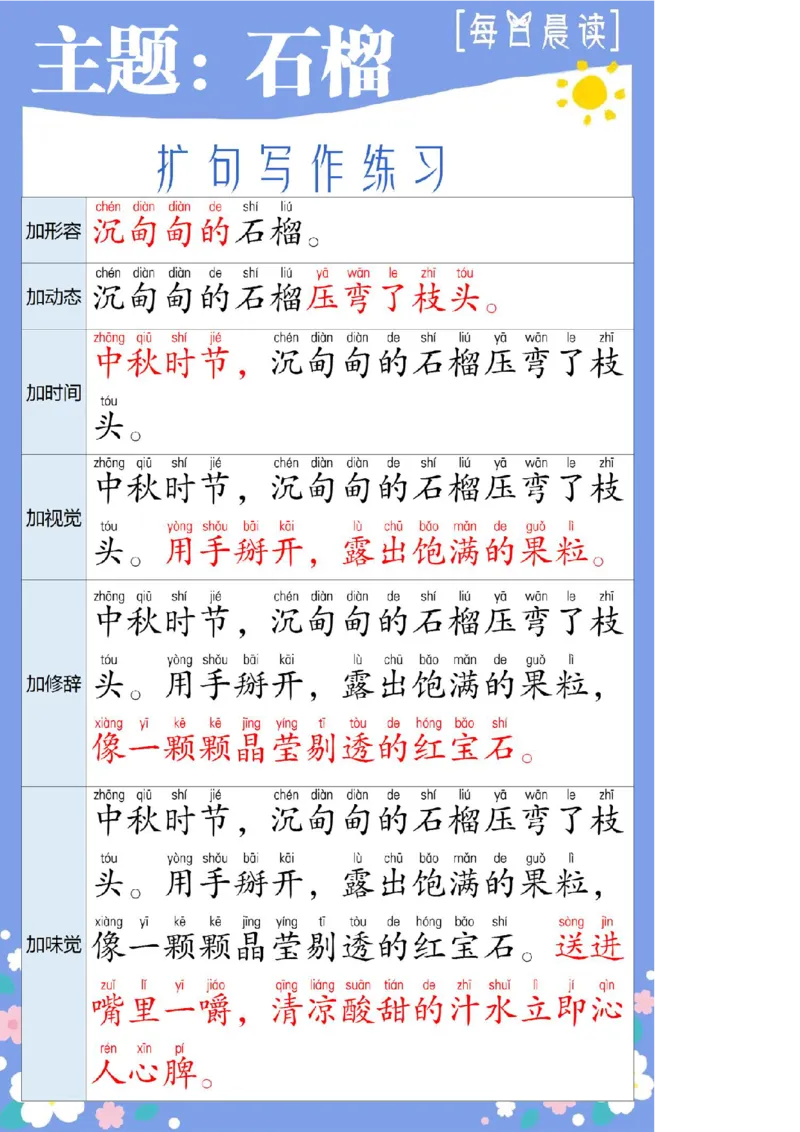 主题：石榴
[每日晨读]
扩句写作练习
加形容
chén diàn diàn de shí liú
沉甸甸的石榴。
加动态
chén diàn diàn de shí liú yā wān le zhī tóu
沉甸甸的石榴压弯了枝头。
加时间
zhōng qiū shí jié chén diàn diàn de shí liú yā wān le zhī
中秋时节，沉甸甸的石榴压弯了枝
tóu
头。
加视觉
zhōng qiū shí jié chén diàn diàn de shí liú yā wān le zhī
中秋时节，沉甸甸的石榴压弯了枝
tóu yòng shǒu bāi kāi lù chū bǎo mǎn de guǒ lì
头。用手掰开，露出饱满的果粒。
加修辞
zhōng qiū shí jié chén diàn diàn de shí liú yā wān le zhī
中秋时节，沉甸甸的石榴压弯了枝
tóu yòng shǒu bāi kāi lù chū bǎo mǎn de guǒ lì
头。用手掰开，露出饱满的果粒，
xiàng yī kē kē jīng yíng tī tòu de hóng bǎo shí
像一颗颗晶莹剔透的红宝石。
加味觉
zhōng qiū shí jié chén diàn diàn de shí liú yā wān le zhī
中秋时节，沉甸甸的石榴压弯了枝
tóu yòng shǒu bāi kāi lù chū bǎo mǎn de guǒ lì
头。用手掰开，露出饱满的果粒，
xiàng yī kē kē jīng yíng tī tòu de hóng bǎo shí sòng jìn
像一颗颗晶莹剔透的红宝石。送进
zuǐ lǐ yī jiáo qīng liáng suān tián de zhī shuǐ lì jí qìn
嘴里一嚼，清凉酸甜的汁水立即沁
rén xīn pí
人心脾。